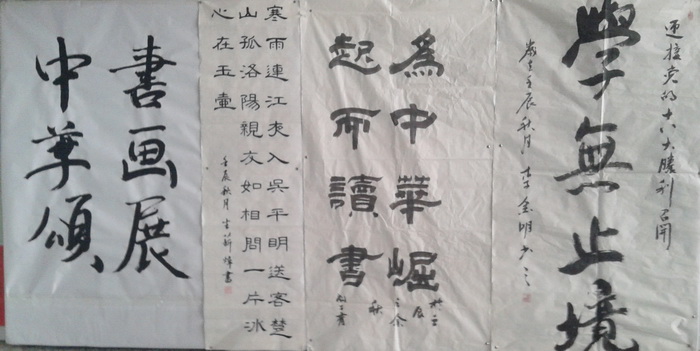 迎接党的十八大勝利召開
學無止境
歲在壬辰秋月
為中華崛
起而讀書
寒雨連江夜入吳平明送客楚
山孤洛陽親友如相問一片冰
心在玉壺
壬辰秋月
書画展
中華頌